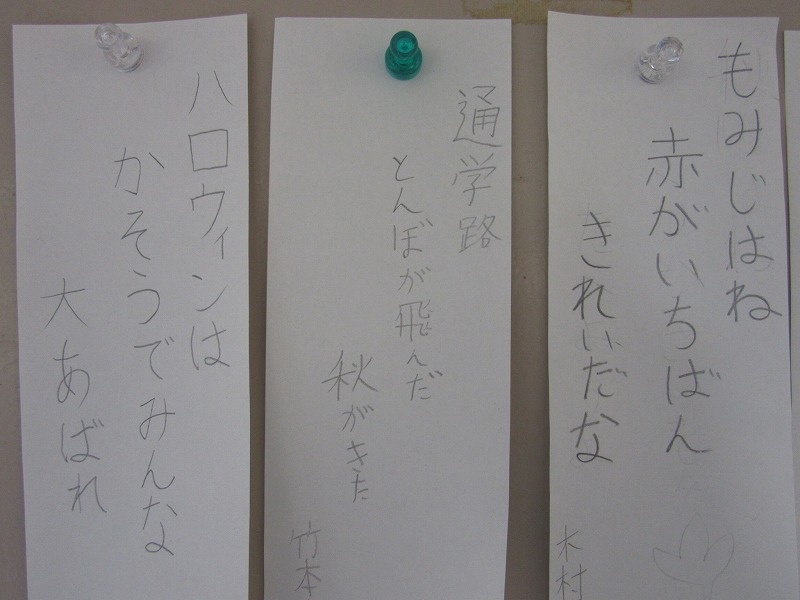 もみじはね
赤がいちばん
きれいだな
木村
通学路
とんぼが飛んだ
秋がきた
竹本
ハロウィンは
かそうでみんな
大あばれ